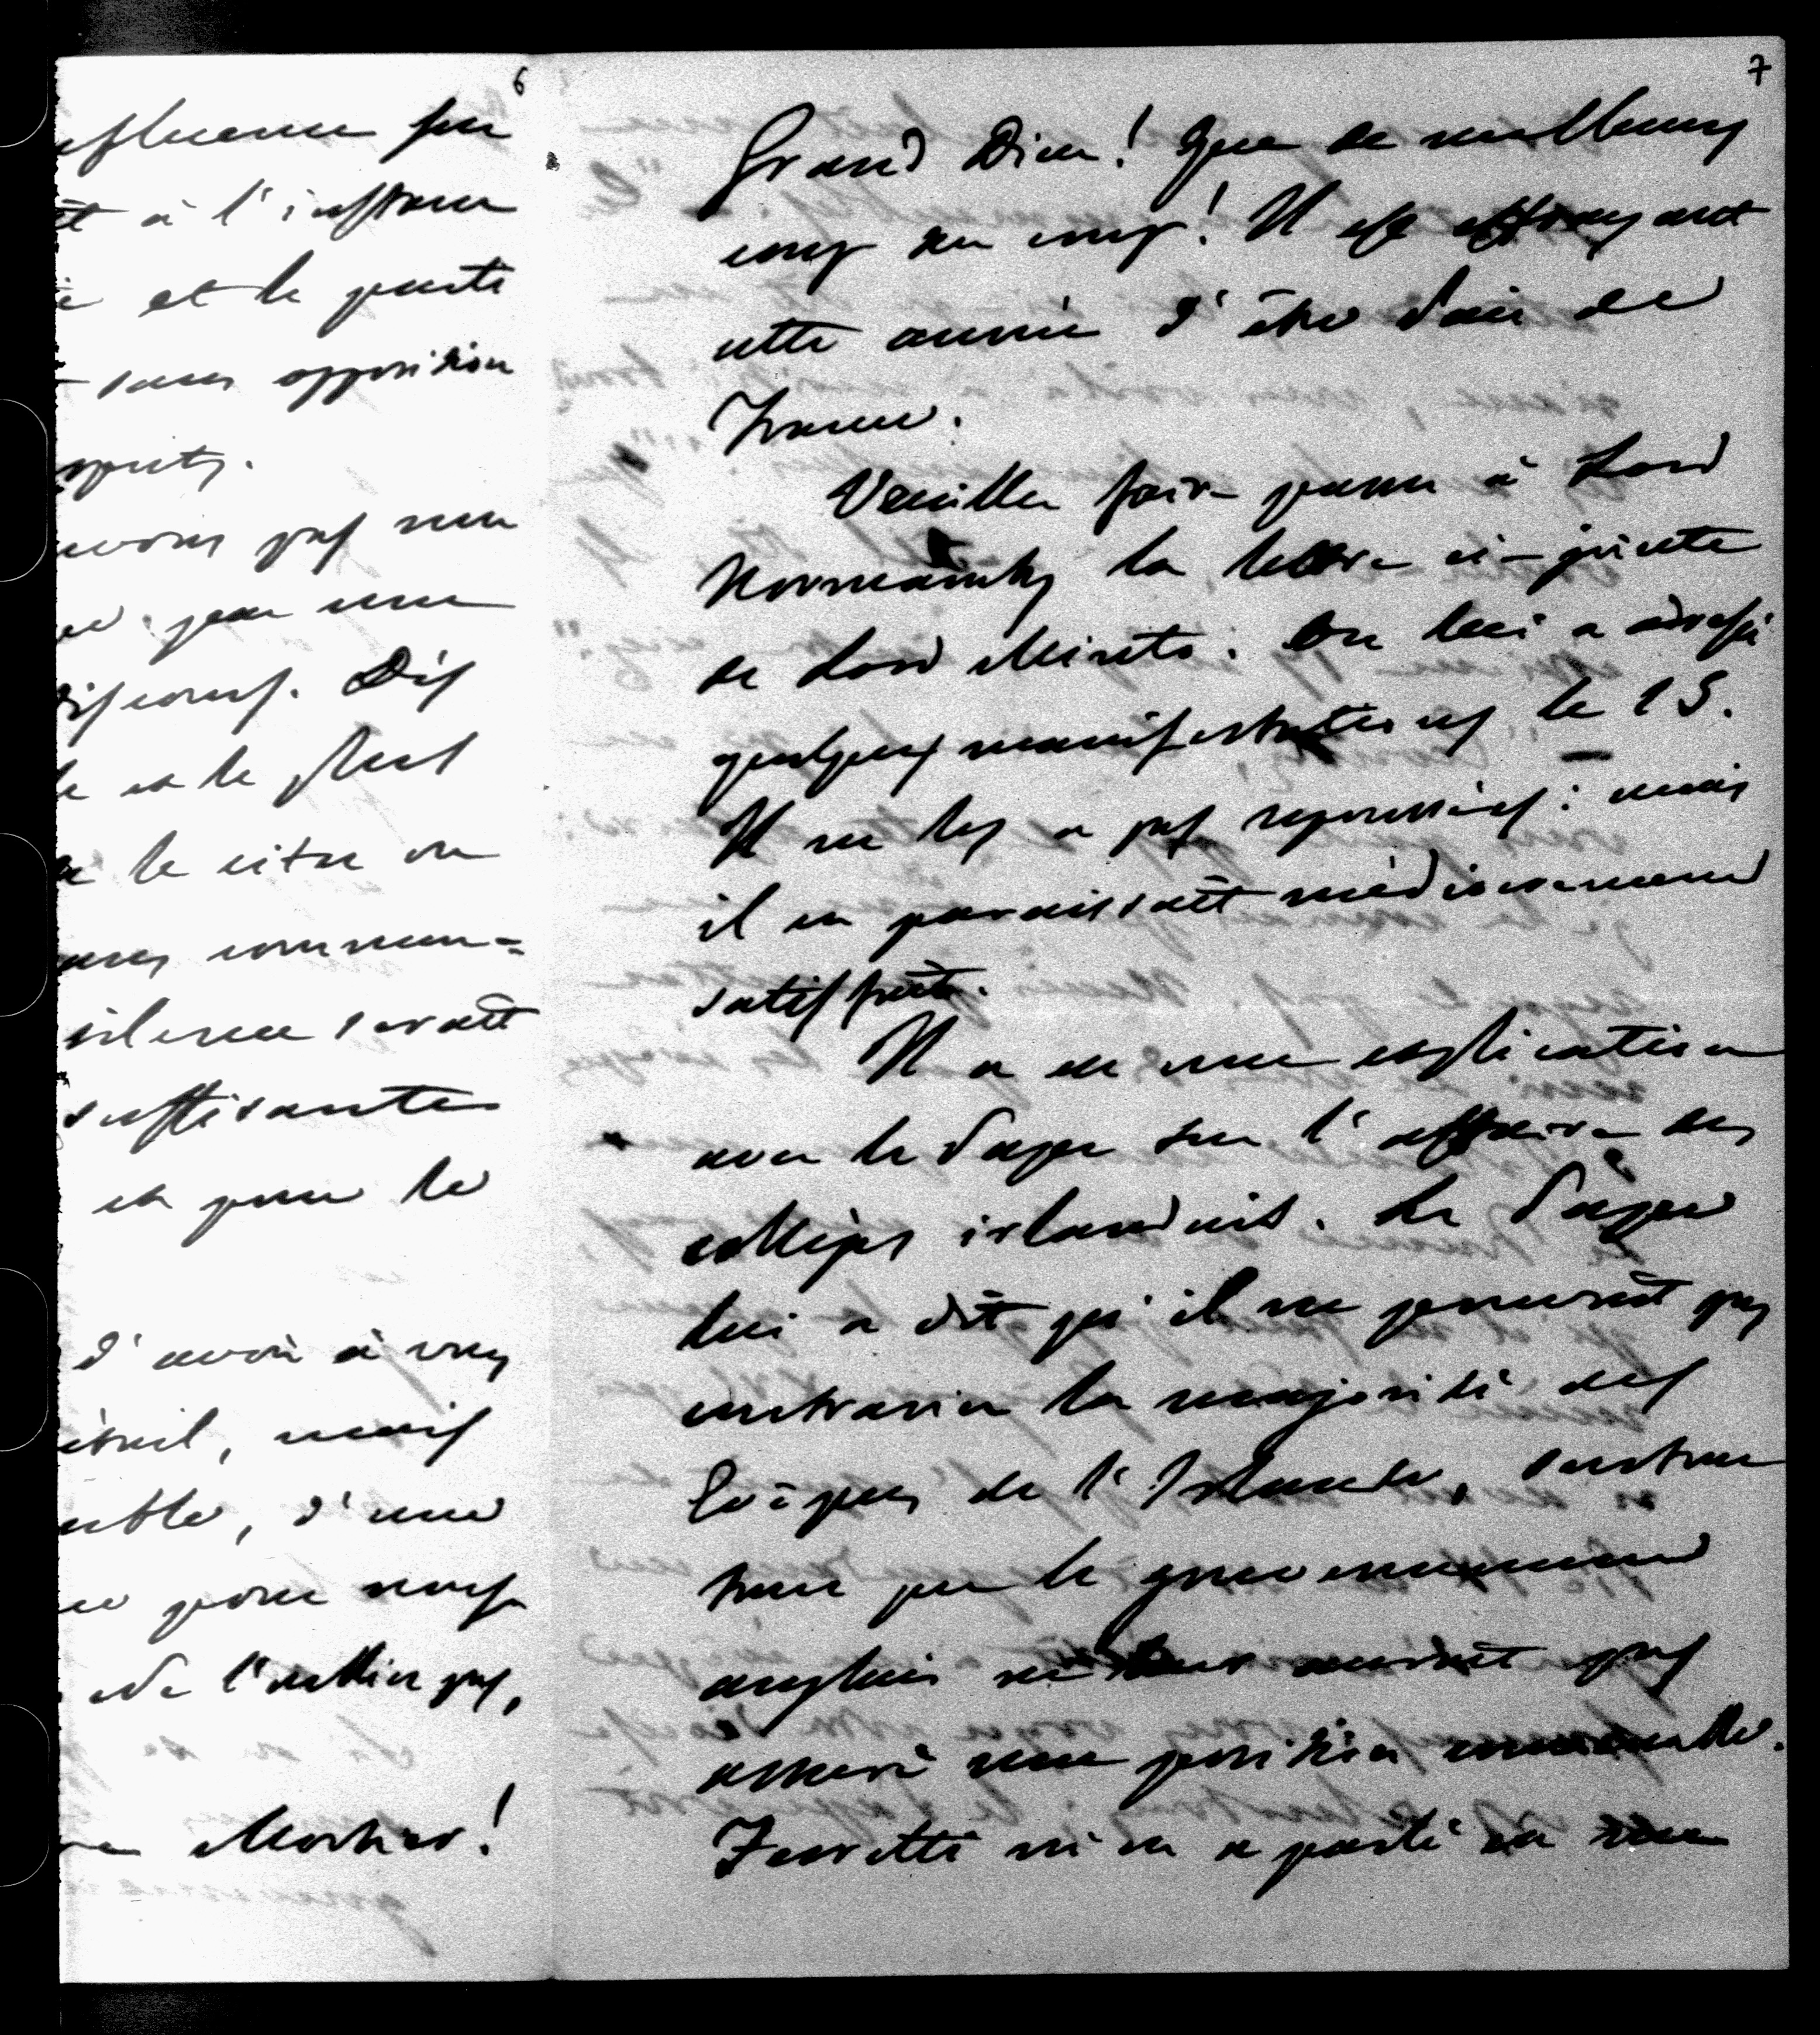 6
influence sur
et à l'instan
é et le parti
sans opposition
esprits.
avons pas un
par une
discours. Dis
le et le seul
le citer ou
commun=
silence serait
suffisante
et pour le
d'avoir à vous
mais
d'une
pour nous
de l'oublier pas,
Mortier!
7
Grand Dieu! Que de malheurs
coup sur coup! Il est effrayant
cette année d'être Pair de
France.
Veuillez faire passer à Lord
Normanby la lettre ci-jointe
de Lord Minto. On lui a adressé
quelques manifestations le 15.
Il ne les a pas repoussées: mais
il en paraissait médiocrement
satisfait.
Il a eu une explication
avec le Pape sur l'affaire des
collèges irlandais. Le Pape
lui a dit qu'il ne pouvait pas
contrarier la majorité des
Evêques de l'Irlande, surtout
tant que le gouvernement
anglais ne leur aurait pas
assuré une position convenable.
Ferretti m'en a parlé en